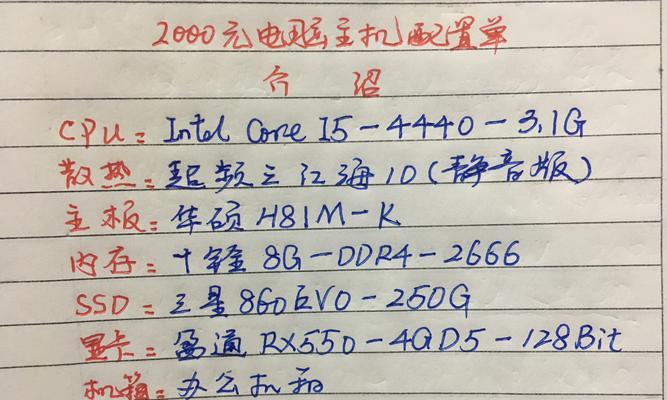 2000元电脑主机配置单
介绍
CPU：Intel Core I5-4440-3.1G
散热：超频三红海10（静音版）
主板：华硕H81M-K
内存：十铨8G-DDR4-2666
SSD：三星860EVO-250G
显卡：盈通RX550-4GD5-128Bit
机箱：办公机箱